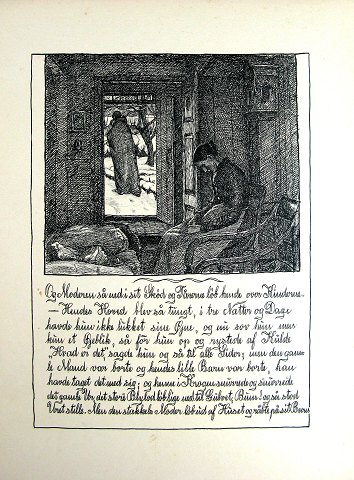 Og Moderen så ned i sit Skød og Tårerne løb hende over Kinderne.
— Hendes Hoved blev så tungt, i tre Nætter og Dage
havde hun ikke lukket sine Øjne, og nu sov hun, men
kun et Øjeblik, så før hun op og rystede af Kulde.
"Hvad er det" sagde hun og så til alle Sider; men den gam-
le Mand var borte og hendes lille Barn var borte, han
havde taget det med sig; og henne i Krogen snurrede og snurrede
det gamle Ur, det store Blylod løb lige ned til Gulvet, Bum! og så stod
Uret stille. Men den stakkels Moder løb ud af Huset og råbte på sit Barn